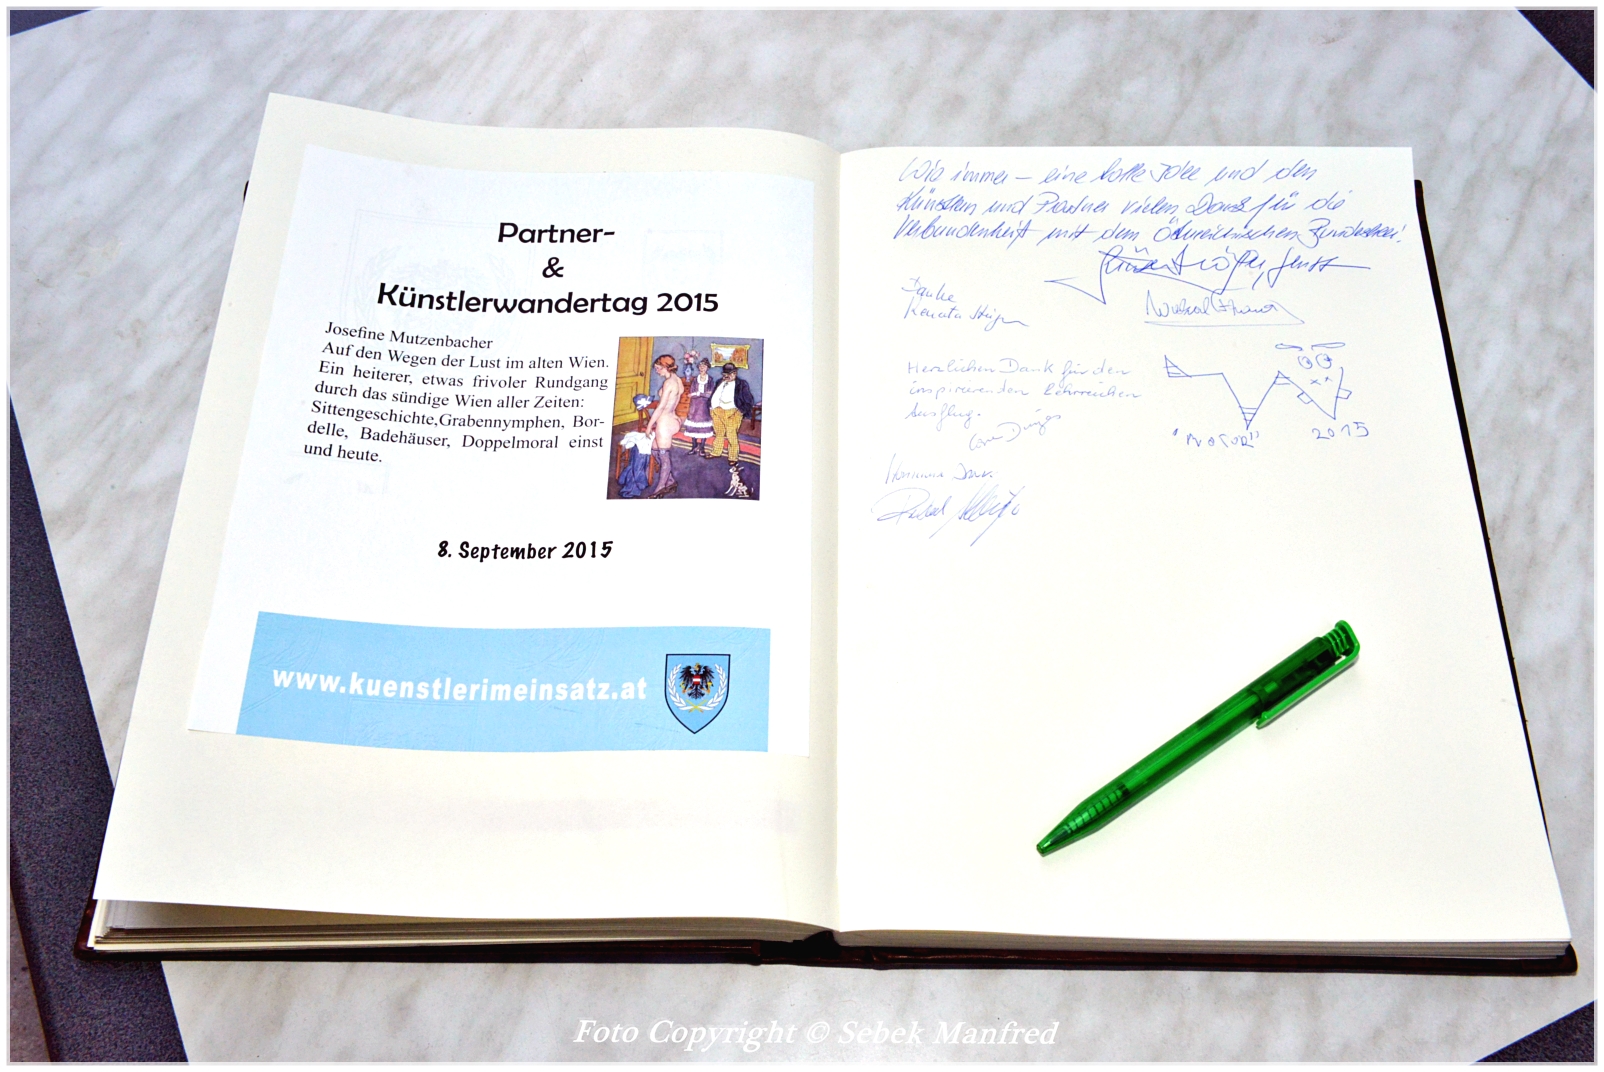 Partner-
&
Künstlerwandertag 2015
Josefine Mutzenbacher
Auf den Wegen der Lust im alten Wien.
Ein heiterer, etwas frivoler Rundgang
durch das sündige Wien aller Zeiten:
Sittengeschichte,Grabennymphen, Bor-
delle, Badehäuser, Doppelmoral einst
und heute.
8. September 2015
www.kuenstlerimeinsatz.at
Wie immer – eine tolle Idee und den
Künstlern und Partner vielen Dank für die
Verbundenheit mit dem Österreichischen Bundesheer!
Danke
Renate
Herzlichen Dank für den
inspirierenden Lehrreichen
Ausflug.
2015
Foto Copyright © Sebek Manfred